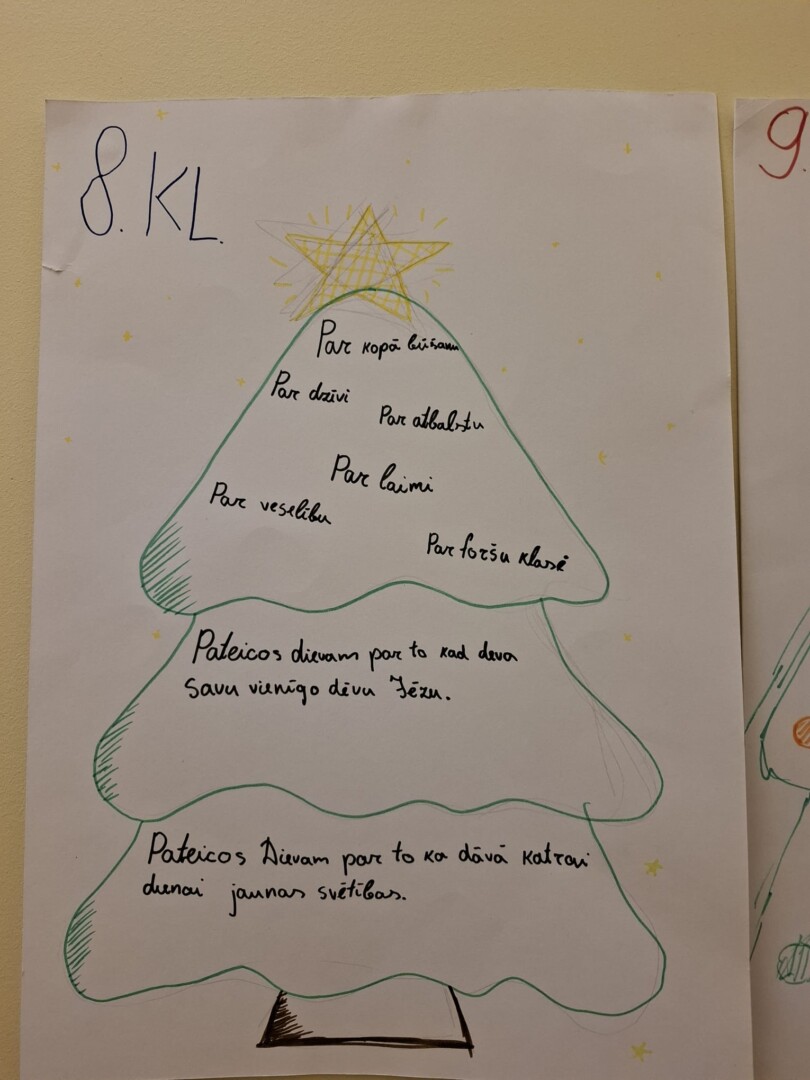 8. KL.
9.
Par kopā būšanu
Par dzīvi
Par atbalstu
Par laimi
Par veselību
Par foršu klasē
Pateicos dievam par to kad deva
savu vienīgo dēvu Jēzu.
Pateicos Dievam par to ka dāvā katrai
dienai jaunas svētības.